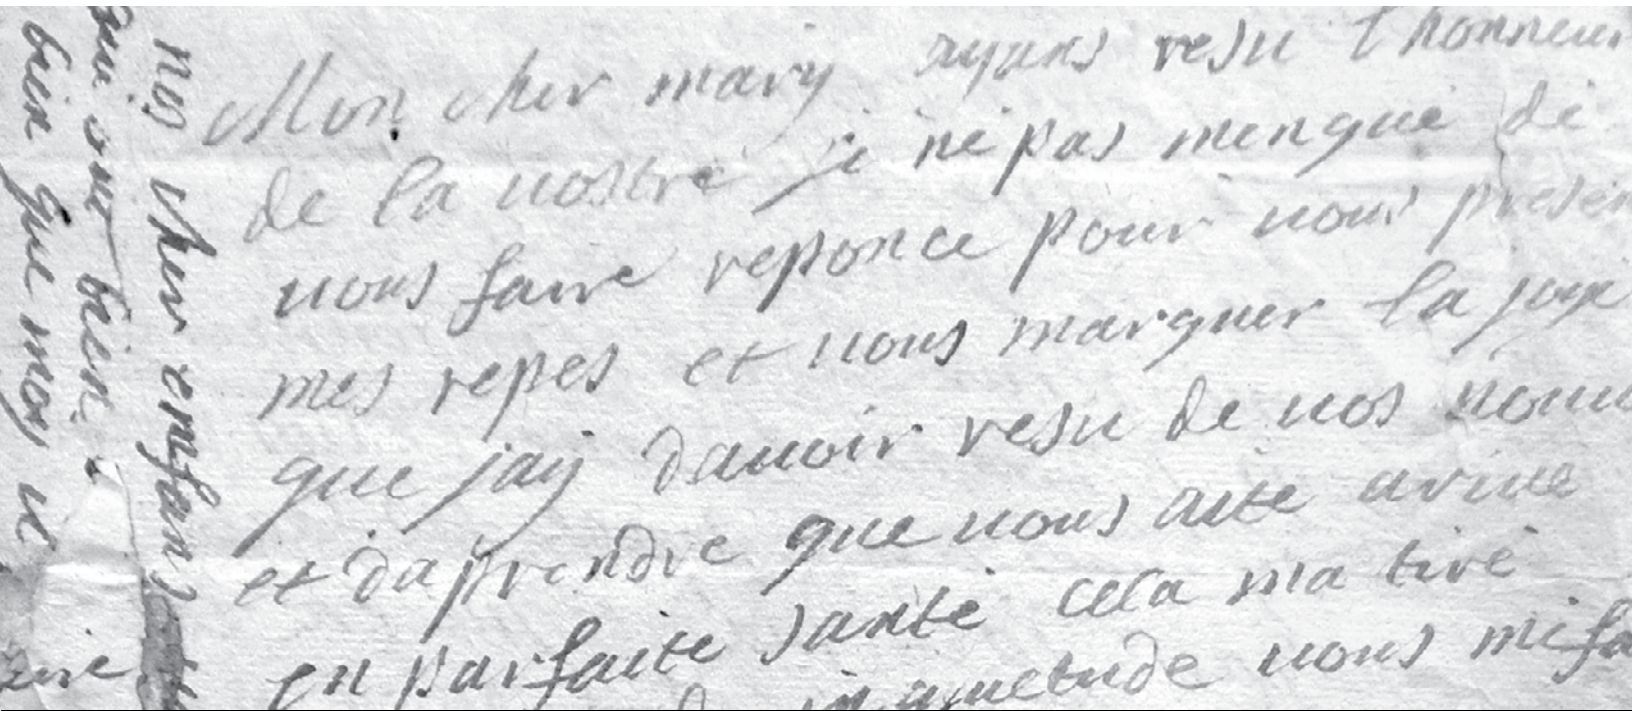 Mon cher mary ayans resu l honneur
de la vostre je né pas mengué de
vous faire reponce pour vous presen
mes repes et vous marquer la joye
que jay davoir resu de vos nouv
et daprendre que vous aite arive
en parfaite santé cela ma tiré
inquietude vous me fa
nos cher enfans
qui sont bien
bien que moy ie